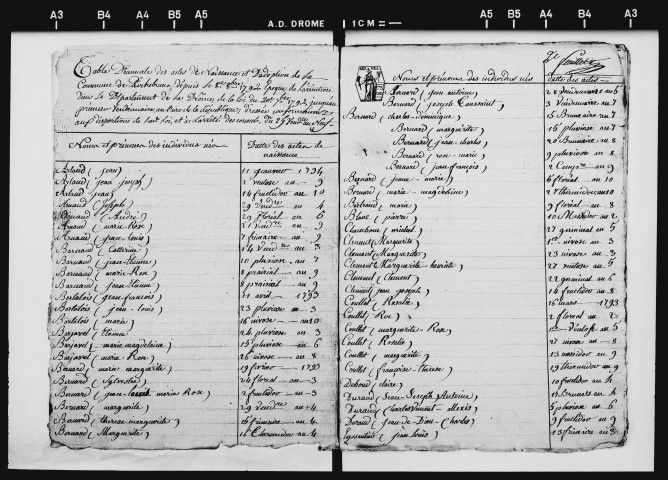 A3 B4 A4 B5 A5 A.D. DROME 1 CM = A5 B5 A4 B4 A3
Table des actes de Naissance et d'adoption de la
Commune de depuis le 1792 jusques
dans le Département de la Drôme de la loi du 20 7bre 1792, jusqu'au
premier Vendémiaire an de la République
aux dispositions de lad. loi, et
Noms et prénoms des individus nés Date des actes de
naissance
Arlaud (jean) 11 janvier 1794
Arlaud (jean joseph) 2 ventose an 9
Arlaud (jean) 14 fructidor an 10
Arnaud (Joseph) 29 Vendre an 4
Arnaud (André) 29 floréal an 6
Arnaud (marie-Rose) 21 Vendre an 9
Arnaud (jean louis) 7 frimaire an 9
Barnaud (Catterine) 14 Vendre an 3
Barnaud (jean-Etienne) 10 pluviose an 7
Barnaud (marie-Rose) 8 prairial an 9
Barnaud (jean Etienne) 8 prairial an 9
Bertalois (jean-françois) 11 avril 1793
Bertolois (jean-louis) 23 pluviose an 3
Bertolois (marie) 16 nivose an 10
Barjavel (Etienne) 24 pluviose an 3
Barjavel (marie magdelaine) 15 pluviose an 6
Barjavel (marie Rose) 26 nivose an 8
Bernard (marie marguerite) 19 février 1793
Bernard (Sylvestre) 24 floréal an 3
Bernard (jean marie Rose) 2 fructidor an 3
Bernard (marguerite) 29 Vendre an 4
Bernard (therese marguerite) 16 frimaire an 4
Bernard (Marguerite) 16 thermidor an 4
2e feuillet
Noms et prénoms des individus nés dates des actes
Bernard (jean antoine) 28 Vendemiaire an 6
Bernard (joseph Toussaint) 3 Vendemiaire an 7
Bernard (charles-Dominique) 15 Brumaire an 7
Bernard (marguerite) 16 pluviose an 7
Bernard (jean-charles) 20 Brumaire an 8
Bernard (rose-marie) 9 pluviose an 8
Bernard (jean françois) 2 Compre an 9
Bernard (jean-marie) 6 floréal an 10
Bernard (marie-magdeleine) 27 thermidor an 10
Bertrand (marie) 9 floréal an 8
Blanc (pierre) 10 Messidor an 2
Chambon (michel) 27 germinal an 5
Clement (Marguerite) 1er nivose an 3
Clement (Marguerite) 23 nivose an 3
Clement (Marguerite-henriette) 27 nivose an 5
Clement (Clement) 22 germinal an 6
Clement (jean joseph) 14 fructidor an 8
Coullet (Rosalie) 16 mars 1793
Coullet (Rose) 2 floréal an 2
Coullet (marguerite-Rose) 1er Ventose an 5
Coullet (Rosalie) 27 nivose an 8
Coullet (marguerite) 13 messidor an 9
Coullet (françoise-Thérèse) 19 thermidor an 9
Deboul (claire) 10 fructidor an 4
Durand (jean-Joseph Antoine) 15 Brumaire an 5
Durand (charles Vincent Alexis) 5 pluviose an 6
Durand (jean-de-Dieu-Charles) 9 fructidor an 9
(jean louis) 13 frimaire an 3